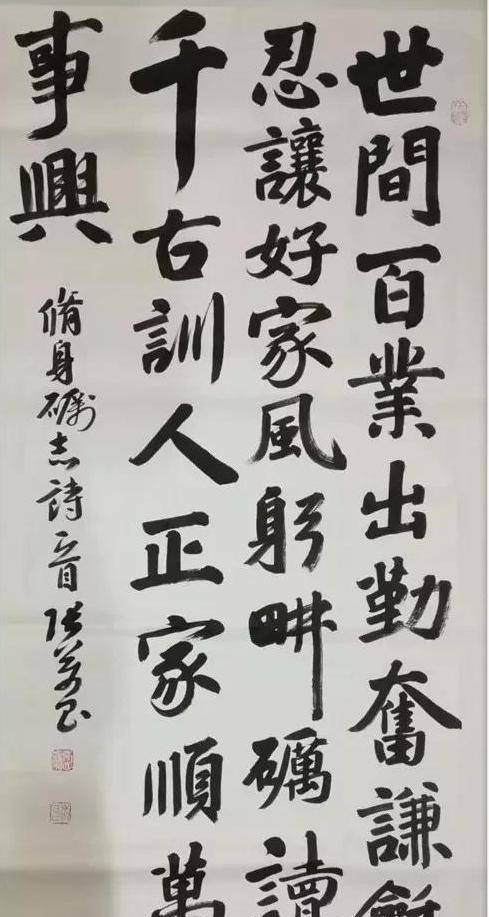 世間百業出勤奮謙龢
忍讓好家風躬畊礪讀
千古訓人正家順萬
事興
脩身礪志詩一首 張萬